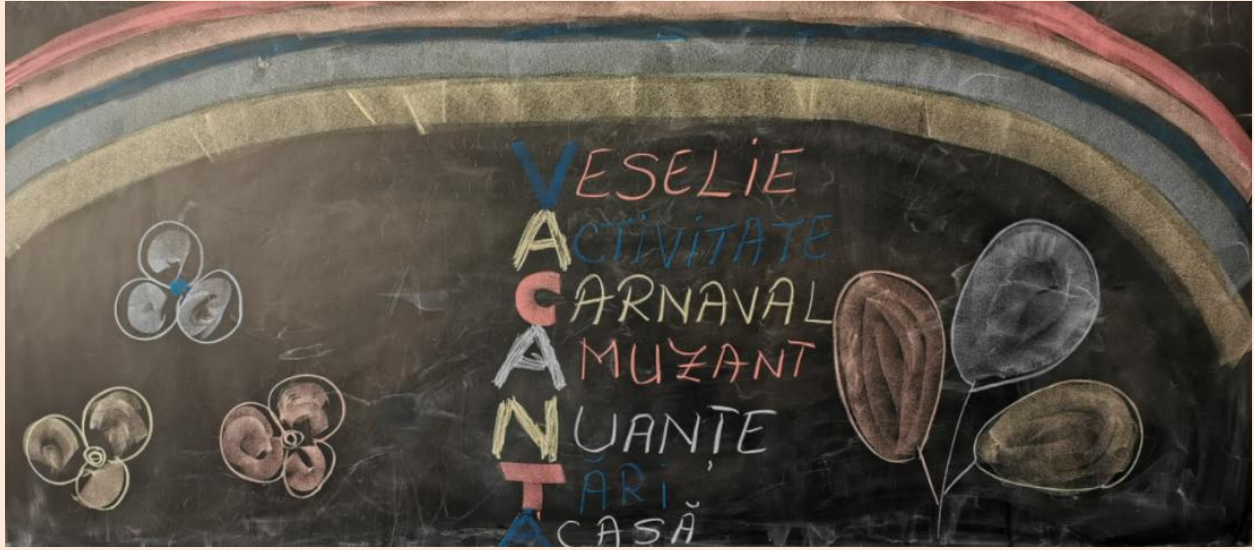 VESELIE
ACTIVITATE
CARNAVAL
AMUZANT
NUANȚE
TĂRI
ACASĂ